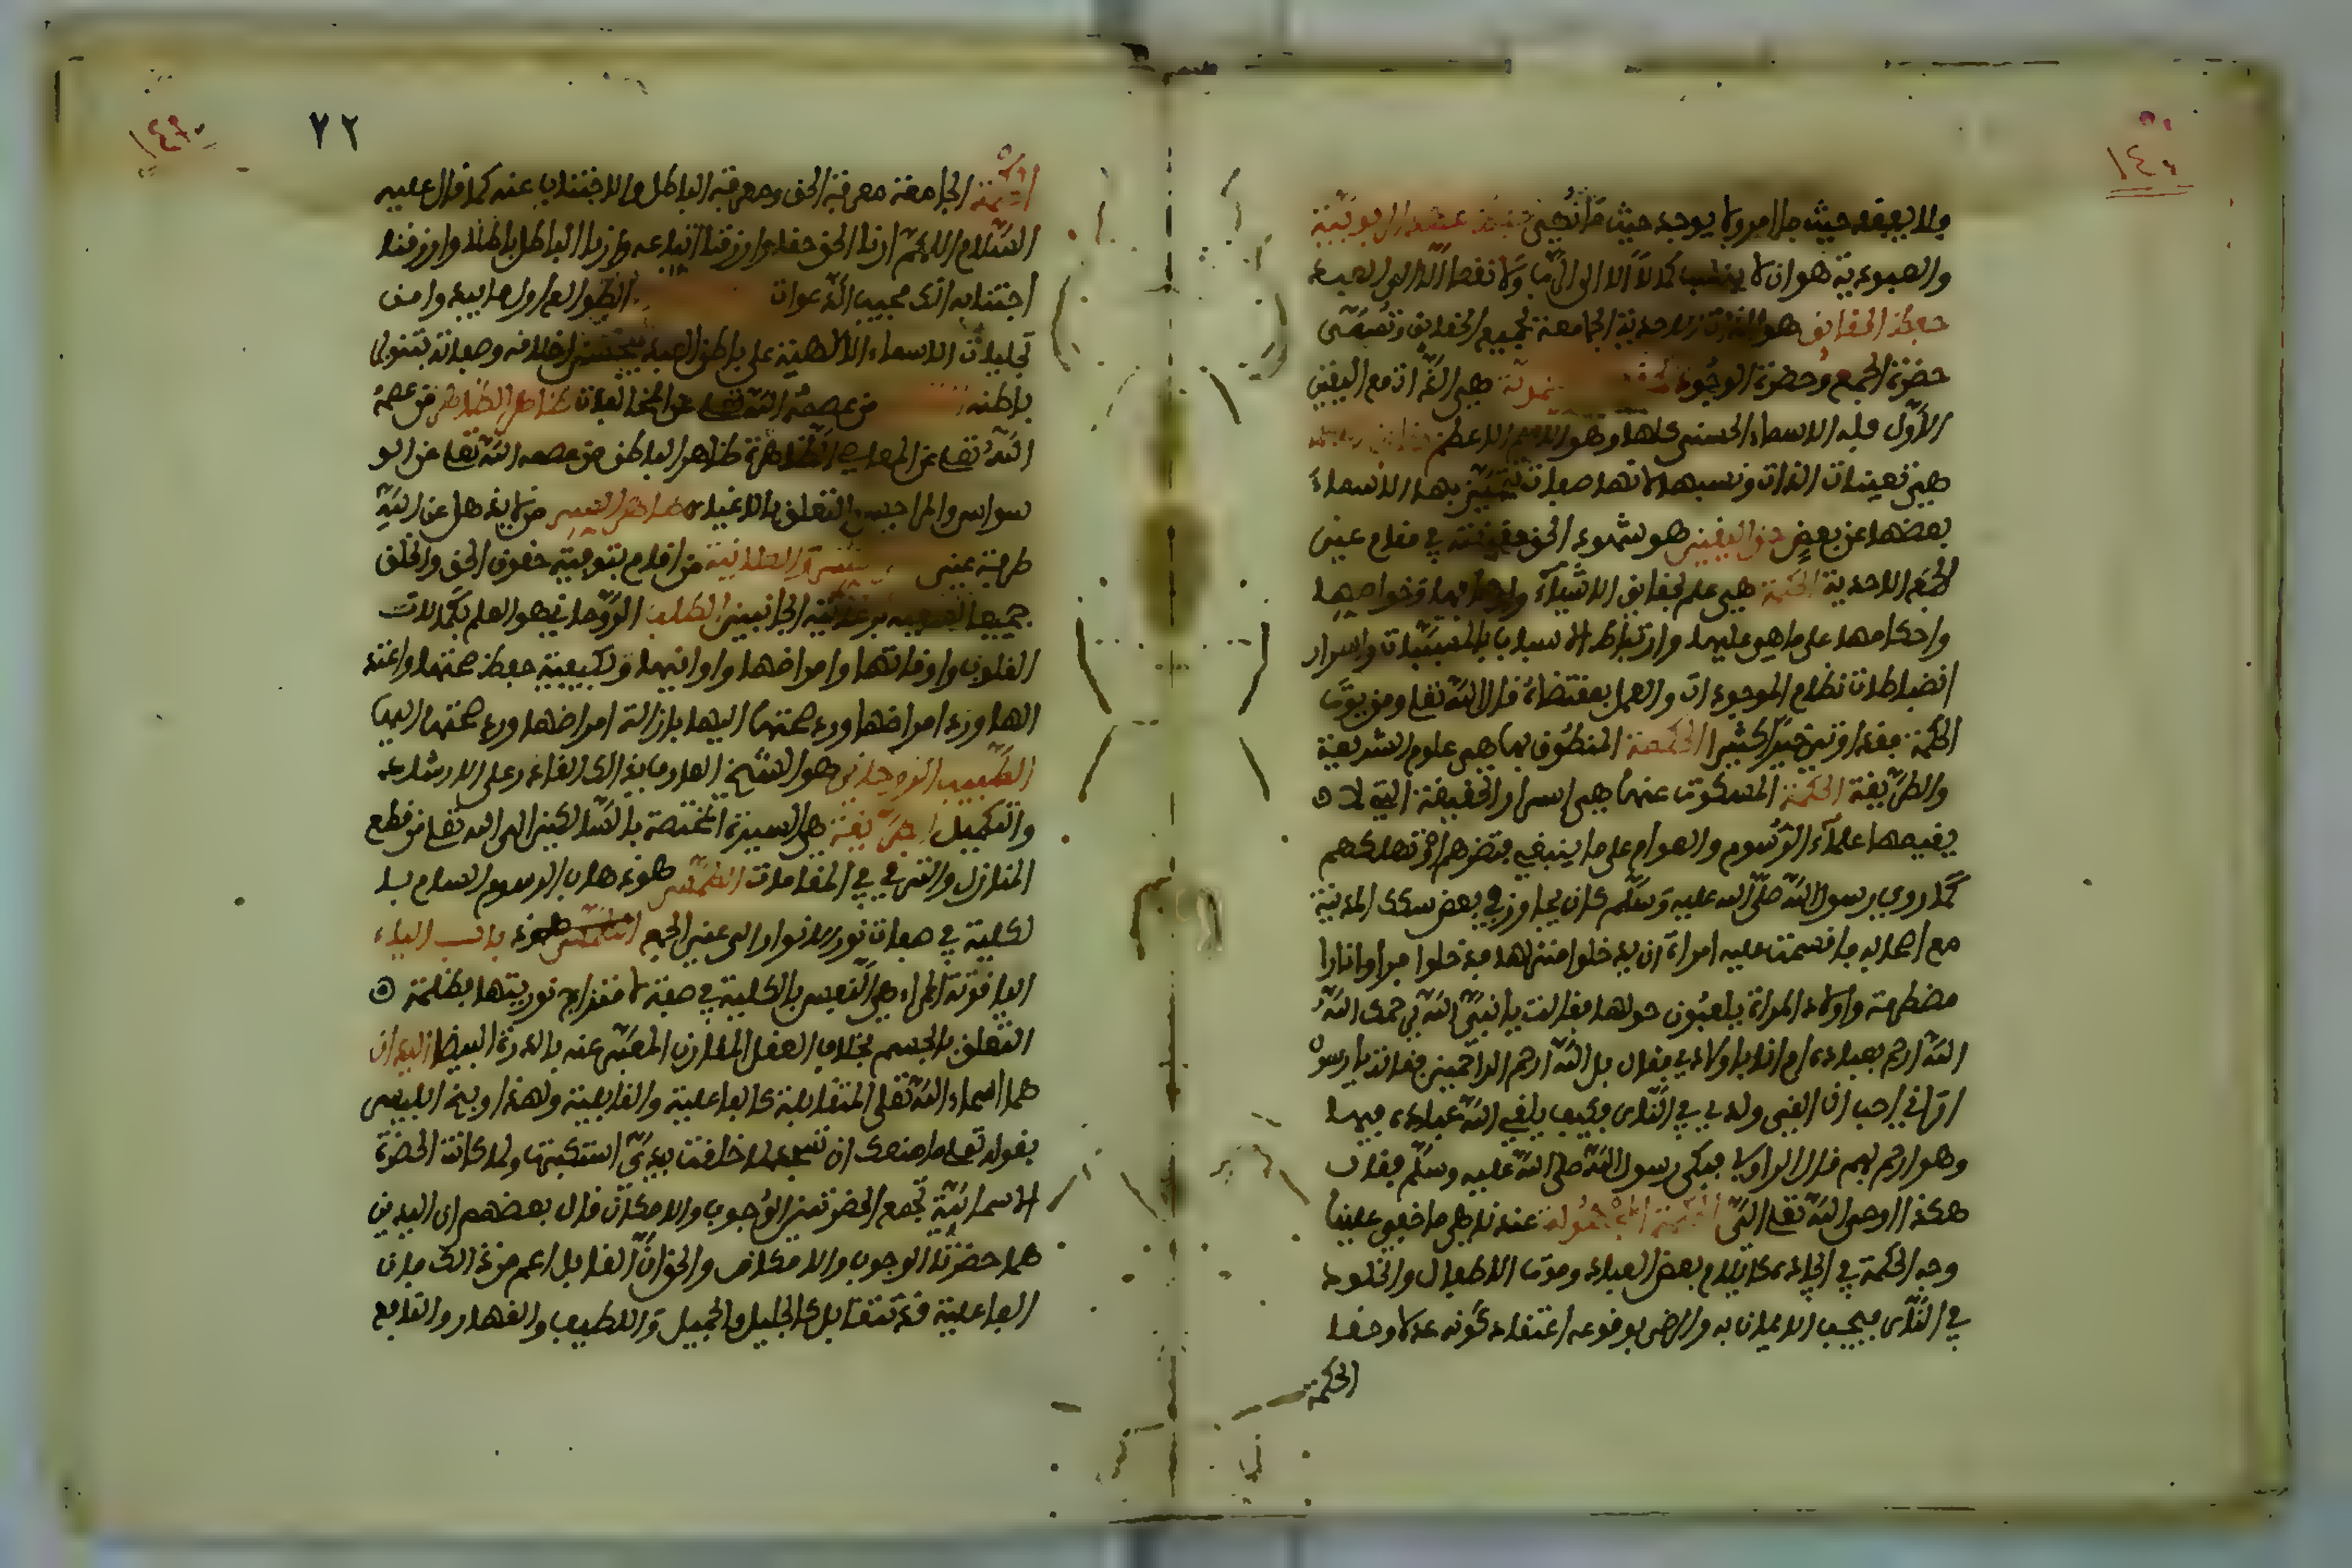 ١٤٠
ولا يفقد حيث ما امر ولا يوجد حيث ما نهى حفظ عهد الربوبية
والعبودية هو ان لا ينسب كمالا الا الى الرب ولا نقصا الا الى العبد
حقيقة الحقائق هو الذات الاحدية الجامعة لجميع الحقايق وتسمى
حضرة الجمع وحضرة الوجود هي الذات مع التعين
الاول فله الاسماء الحسنى كلها وهو الاسم الاعظم
هي تعينات الذات ونسبها لانها صفات تتميز بها الاسماء
بعضها عن بعض حق اليقين هو شهود الحق حقيقة في مقام عين
الجمع الاحدية الحكمة هي علم بحقايق الاشياء واوصافها وخواصها
واحكامها على ما هي عليها وارتباط الاسباب بالمسببات واسرار
انضباطات نظام الموجودات والعمل بمقتضاه قال الله تعلى ومن يوت
الحكمة فقد اوتي خيرا كثيرا الحكمة المنطوق بها هي علوم الشريعة
والطريقة الحكمة المسكوت عنها هي اسرار الحقيقة التي لا
يفهمها علماء الرسوم والعوام على ما ينبغي فتضرهم او تهلكهم
كما روي رسول الله صلى الله عليه وسلم كان يجاوز في بعض سكك المدينة
مع اصحابه فاقسمت عليه امراة ان يدخلوا منزلها فدخلوا فراوا نارا
مضطرمة واولاد المراة يلعبون حولها فقالت يا نبي الله
الله ارحم بعباده ام انا باولادي فقال بل الله ارحم الراحمين فقالت يا رسول
اتراني احب ان القي ولدي في النار فكيف يلقي الله عباده فيها
وهو ارحم بهم قال الراوي فبكى رسول الله صلى الله عليه وسلم فقال
هكذا اوحى الله تعلى الي الحكمة المجهولة عندنا هي ما خفي علينا
وجه الحكمة في ايجاده كايلام بعض العباد وموت الاطفال والخلود
في النار فيجب الايمان به والرضى بوقوعه واعتقاد كونه عدلا وحقا
الحكمة
١٤٩
٧٢
الحكمة الجامعة معرفة الحق ومعرفة الباطل والاجتناب عنه كما قال عليه
السلام اللهم ارنا الحق حقا وارزقنا اتباعه وارنا الباطل باطلا وارزقنا
اجتنابه انك مجيب الدعوات الطوالع اول ما يبدوا من
تجليات الاسماء الالهية على باطن العبد فيحسن اخلاقه وصفاته بتنوير
باطنه من عصمه الله تعلى عن المخالفات طاهر الظاهر من عصمه
الله تعلى عن المعاصي الظاهرة طاهر الباطن من عصمه الله تعلى عن الو
سواس والهواجس والتعلق بالاغيار طاهر السر من لا يذهل عن الله
طرفة عين والعلانية من اقام بتوفية حقوق الحق والخلق
جميعا لسعيه برعاية الجانبين الطب الروحاني هو العلم بكمالات
القلوب وافاتها وامراضها وادوايها وبكيفية حفظ صحتها واعتد
الها ورد امراضها ورد صحتها اليها بازالة امراضها ورد صحتها اليها
الطبيب الروحاني هو الشيخ العارف بذالك القادر على الارشاد
والتكميل الطريقة هي السيرة المختصة بالسالكين الى الله تعلى من قطع
المنازل والترقي في المقامات الطمس هو ذهاب الرسوم السيار با
لكلية في صفات نور الانوار الى عين الجمع باب الياء
الياقوتة الحمراء هي النفس بالكلية في صفة لامتزاج نوريتها بظلمة
التعلق بالجسم بخلاف العقل المفارق المعبر عنه بالدرة البيضا اليدان
هما اسماء الله تعلى المتقابلة كالفاعلية والقابلية ولهذا وبخ ابليس
بقوله تعلى ما منعك ان تسجد لما خلقت بيدي استكبرت ولما كانت الحضرة
الاسمائية تجمع الحضرتين الوجوب والامكان قال بعضهم ان اليدين
هما حضرتا الوجوب والامكان والحق ان التقابل اعم من ذالك فان
الفاعلية قد تتقابل كالجليل والجميل واللطيف والقهار والنافع